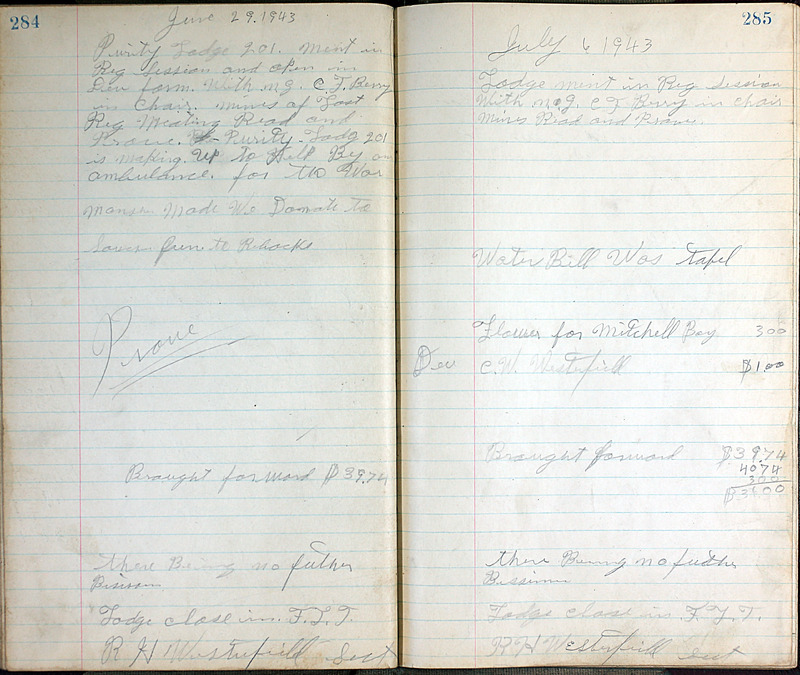 284
June 29. 1943
Purity Lodge 201. ment in
Reg Session and open in
Due form. With n.g. C.T. Berry
in Chair. mines of Last
Reg Meating Read and
Prove. Purity. Lodg 201
is making up to Hell By an
ambulance. for the War
Made We Donate to
Prove
Brought forward $39.74
there Being no futher
Lodge close in. F.L.T.
R H Westerfield Sect
285
July 6 1943
Lodge ment in Reg Session
With n.g. C T Berry in chair
mines Read and Prove.
Water Bill Was tapel
Flower for Mitchell Boy 300
Due C.W. Westerfield $1.00
Brought forward $39.74
4074
300
there Being no futher
Bissines
Lodge close in. F.L.T.
R H Westerfield Sect